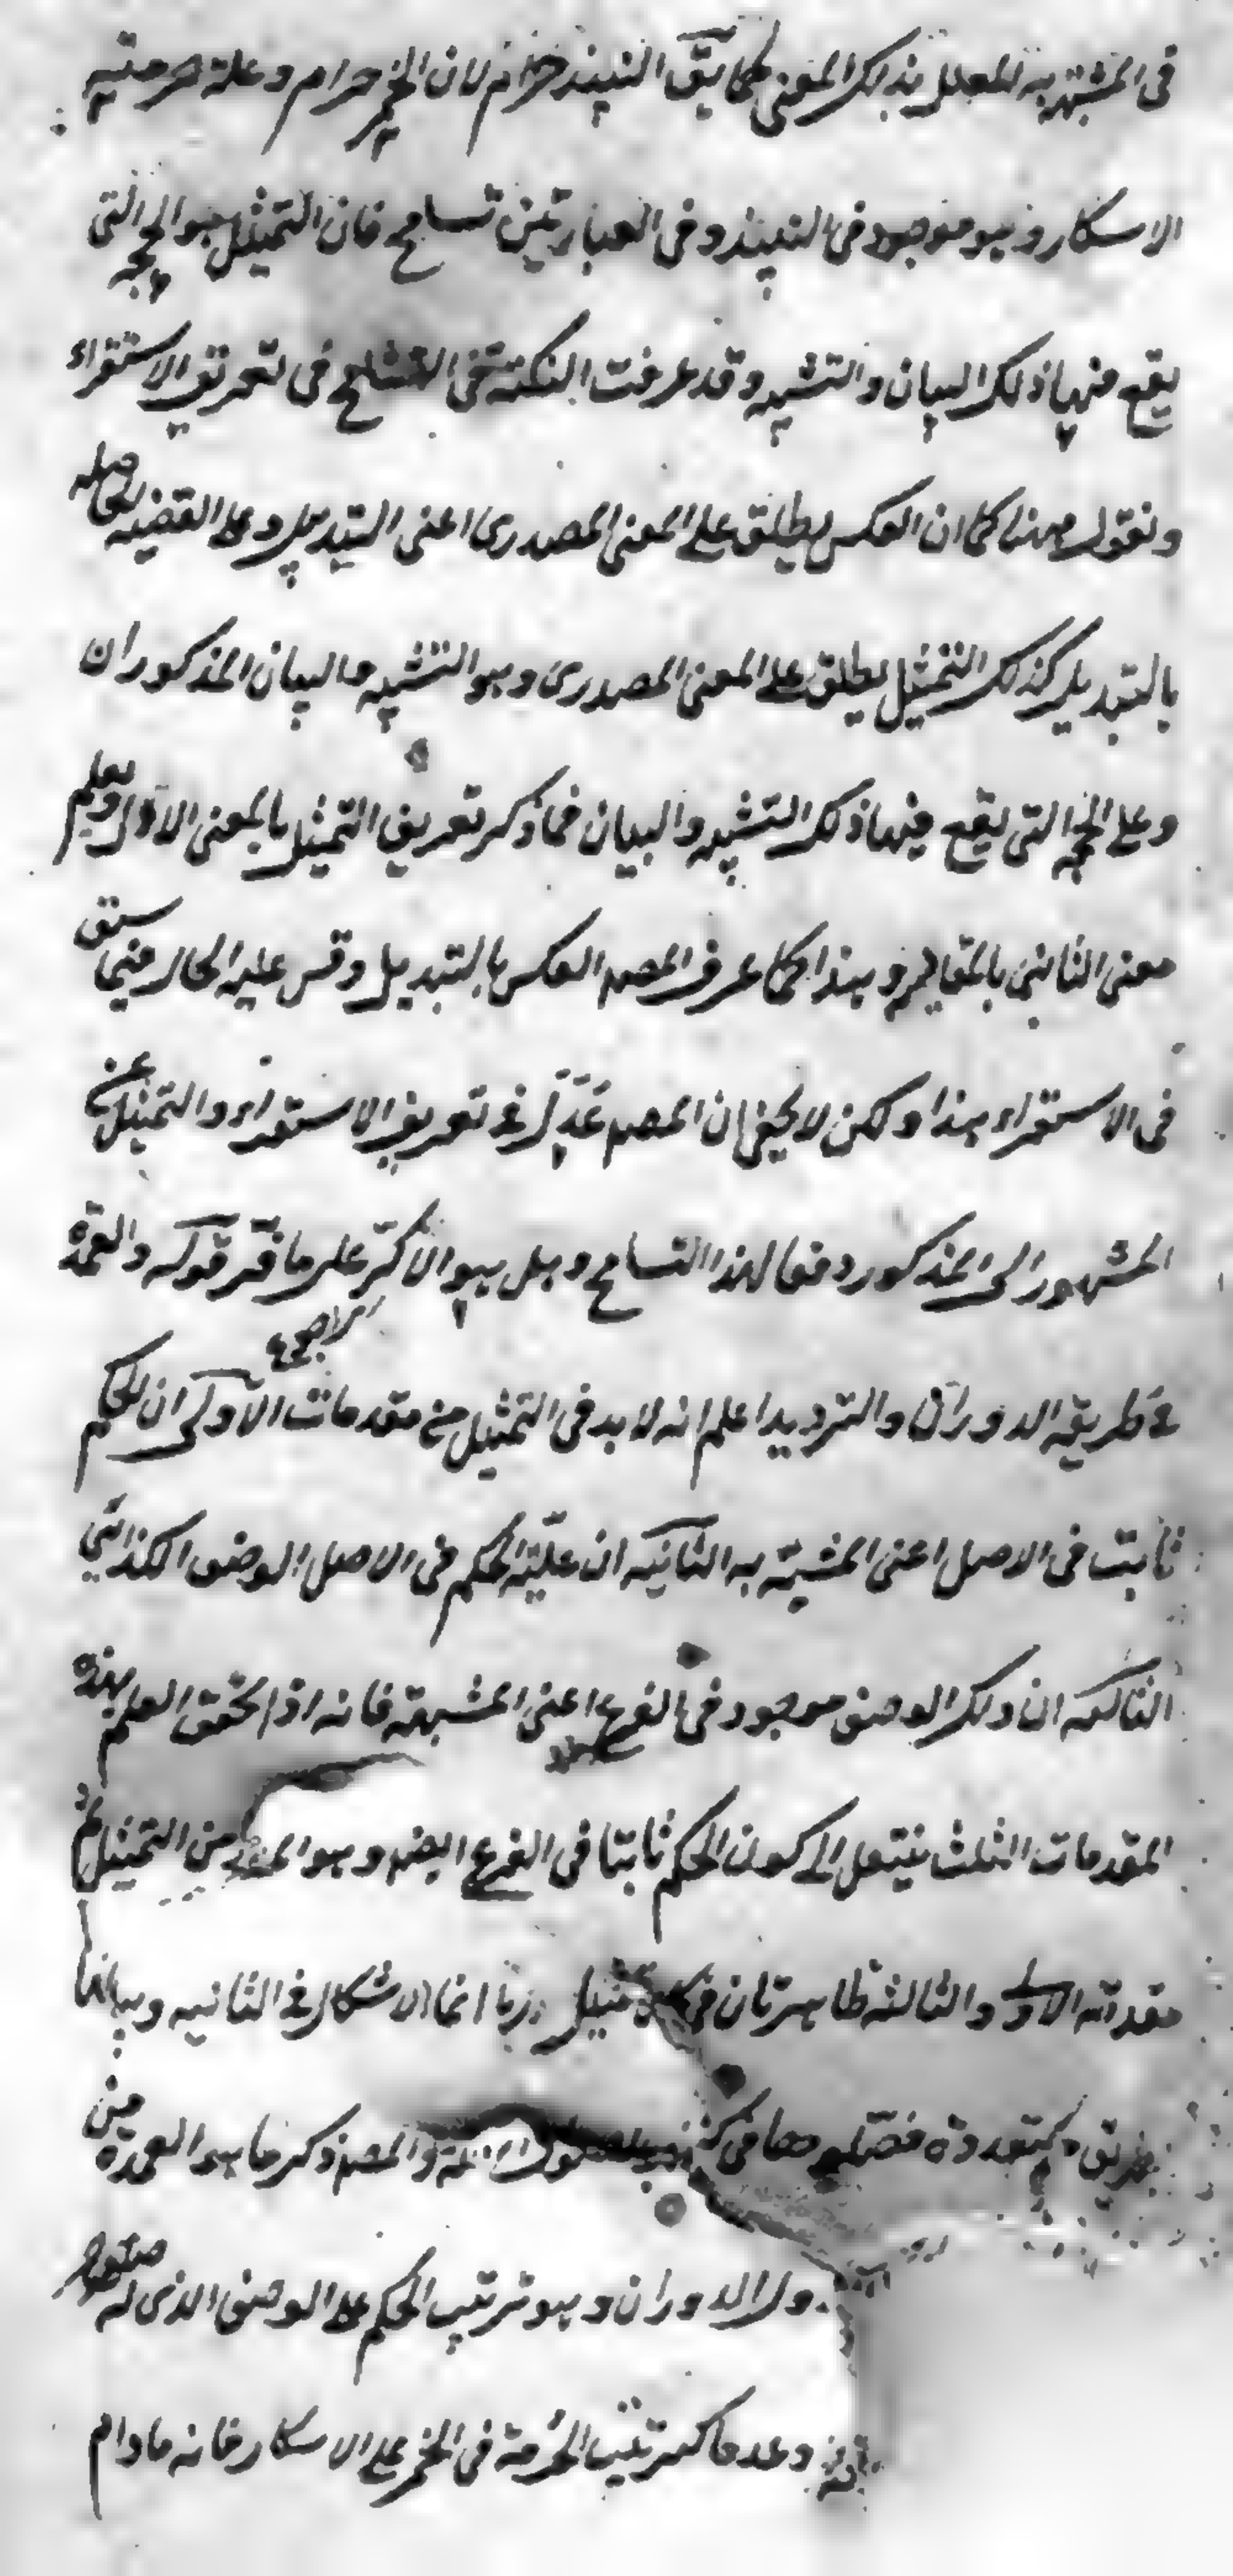 فى المشبه به المعلل بذلك المعنى كما يق النبيذ حرام لان الخمر حرام وعلة حرمته
الاسكار وهو موجود فى النبيذ وفى العبارتين تسامح فان التمثيل هو الحجه التى
يقع فيها ذلك البيان والتشبيه وقد عرفت النكتة فى التسامح فى تعريف الاستقراء
ونقول ههنا كما ان العكس يطلق على المعنى المصدرى اعنى التبديل وعلى القضيه الحاصله
بالتبديل كذلك التمثيل يطلق على المعنى المصدرى وهو التشبيه والبيان المذكوران
وعلى الحجه التى يقع فيها ذلك التشبيه والبيان فما ذكر تعريف التمثيل بالمعنى الاول ويعلم
معنى الثانى بالمقايسه وهذا كما عرف المصـ العكس بالتبديل وقس عليه الحال فيما سبق
فى الاستقراء هذا ولكن لا يخفى ان المصـ عدل فى تعريف الاستقراء والتمثيل عن
المشهور الى المذكور دفعا لهذا التسامح وهل هو الا كر على ما فر قوله والعمدة
فى طريقه الدوران والترديد اعلم انه لا بد فى التمثيل من مقدمات الاولى ان الحكم
ثابت فى الاصل اعنى المشبه به الثانيه ان علّة الحكم فى الاصل الوصف الكذائى
الثالثه ان ذلك الوصف موجود فى الفرع اعنى المشبه فانه اذا تحقق العلم بهذه
المقدمات الثلث ينتقل الى كون الحكم ثابتا فى الفرع ايضا وهو المط من التمثيل ثم
مقدمته الاولى والثالثة ظاهرتان فى كل تمثيل انما الاشكال فى الثانيه وبيانها
بطريق متعددة فصلوها فى كتب والمصـ ذكر ما هو العمدة من
الدوران وهو ترتب الحكم على الوصف الذى له صلوح
وعدما كترتب الحرمة فى الخمر على الاسكار فانه مادام